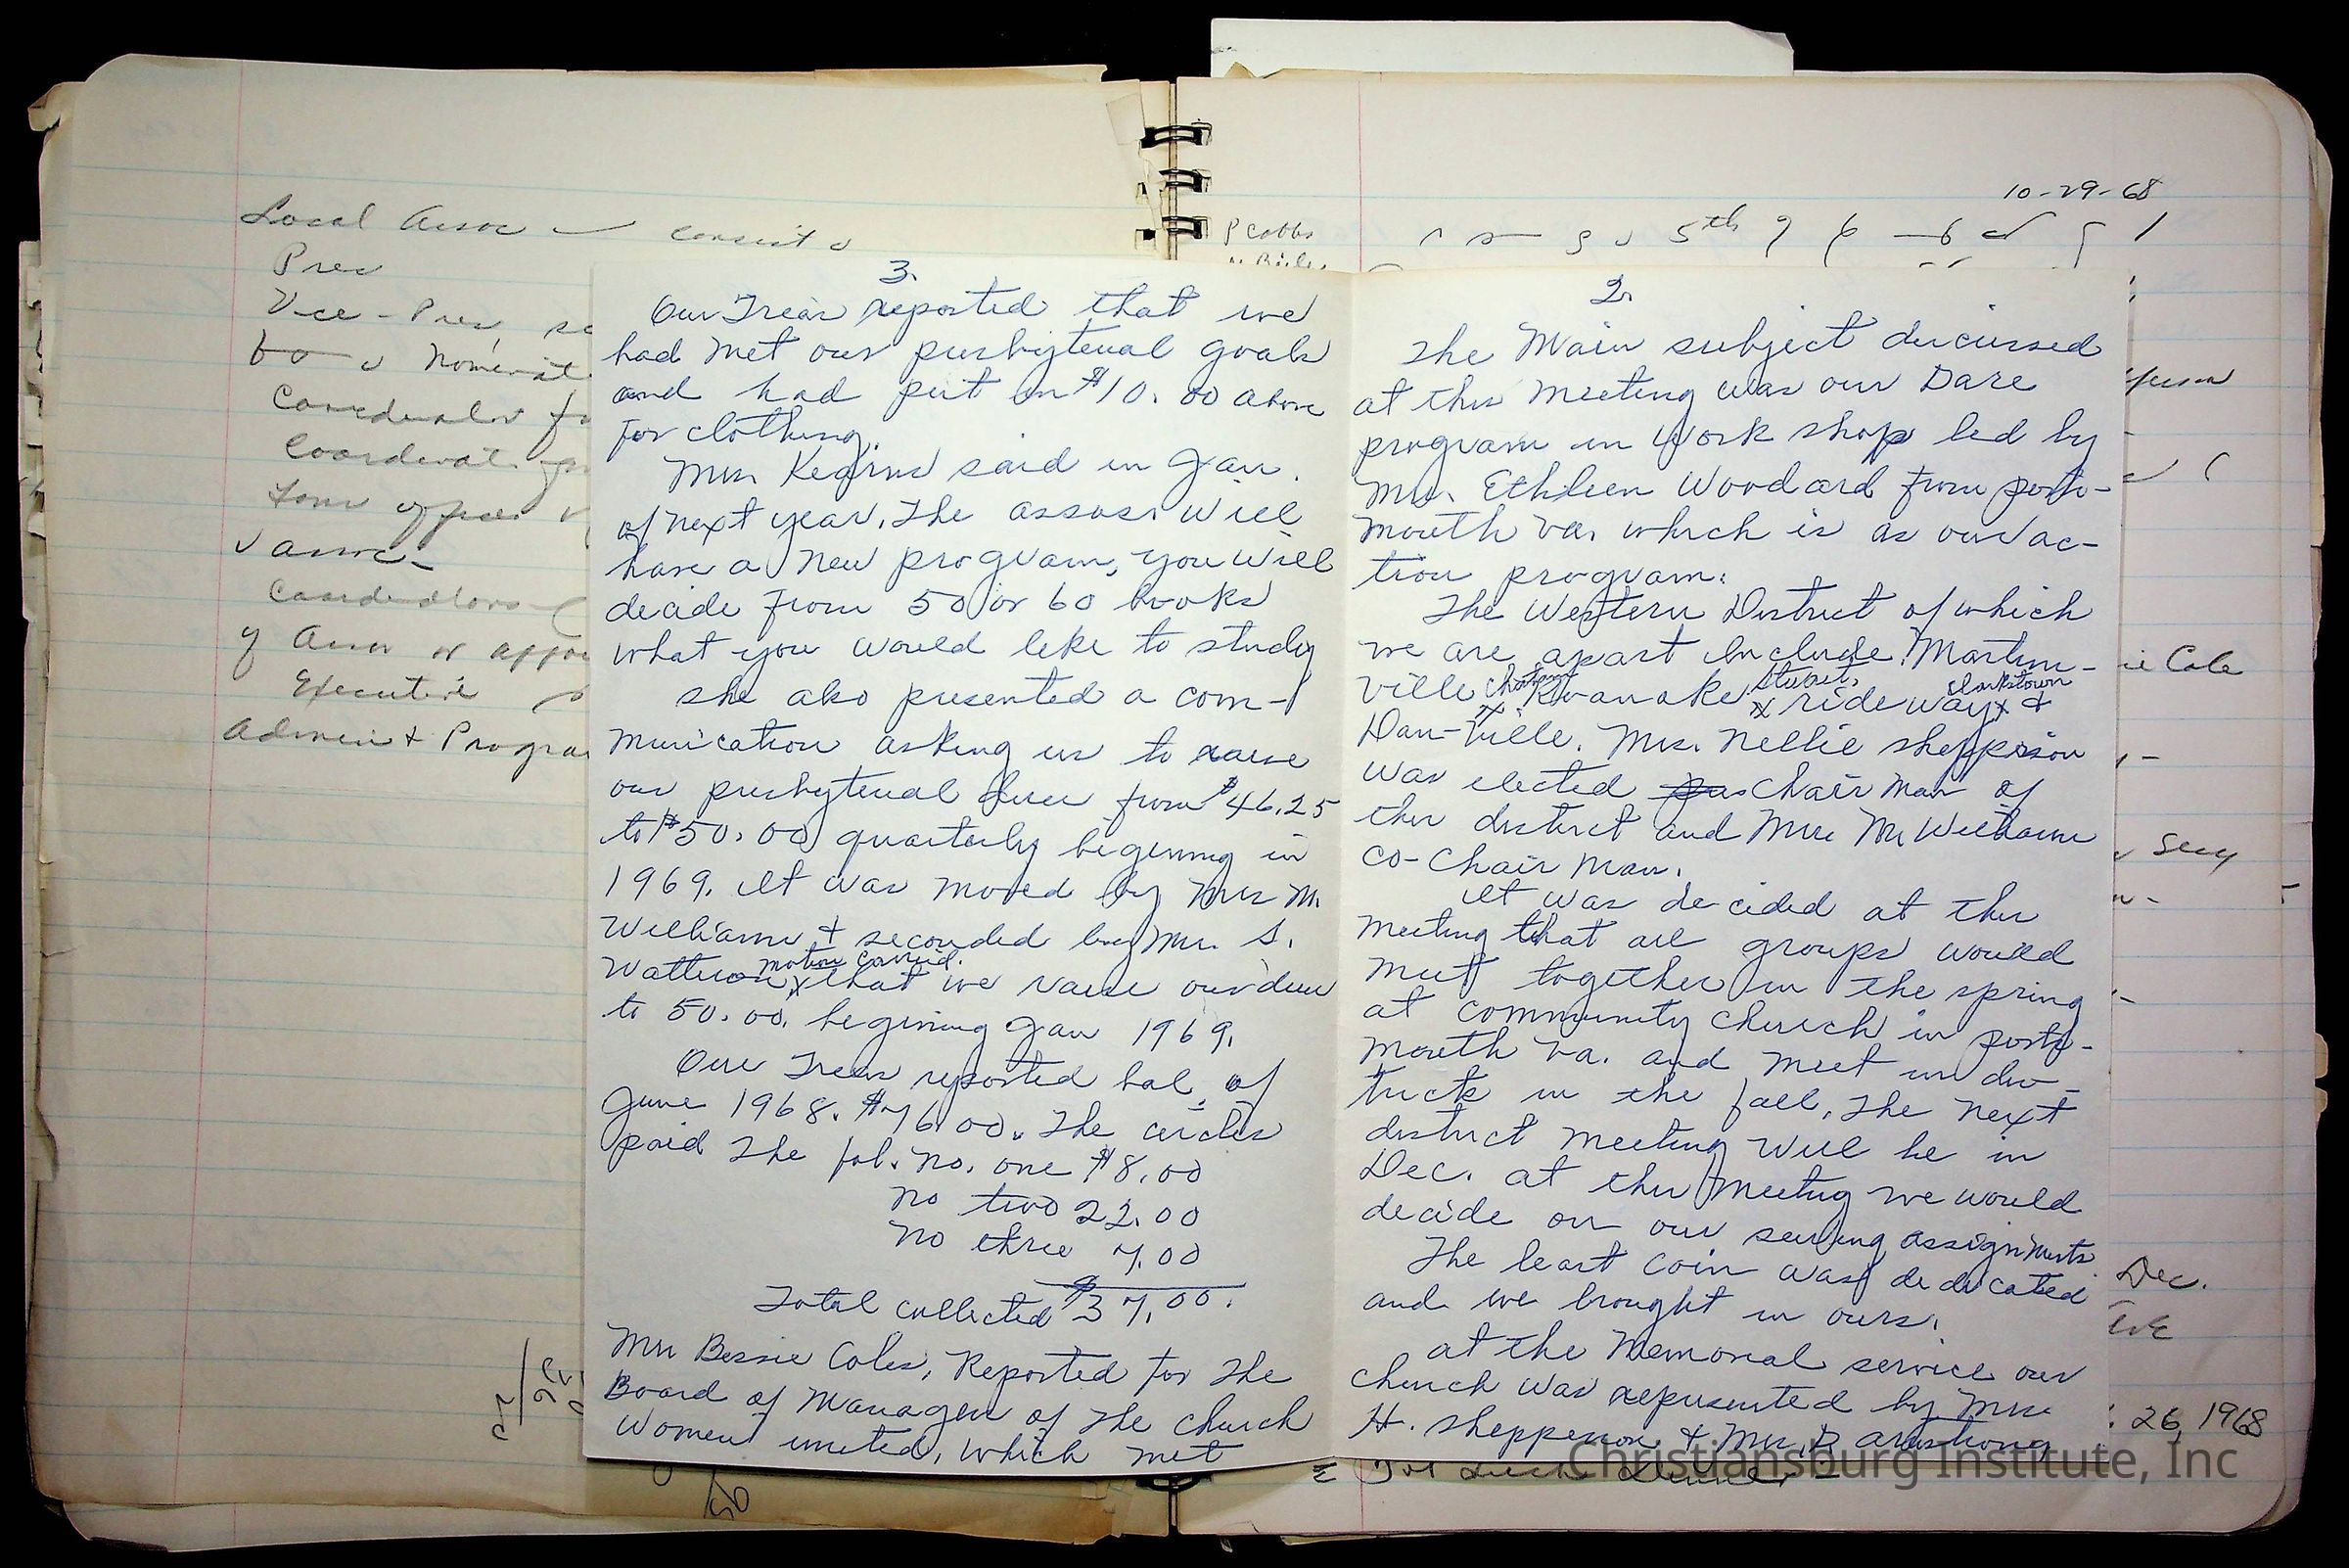 Local Assoc
Pres
Vice-Pres,
Coordinator
Coordinat
v assoc-
Executive
Admin + Program
10-29-68
P Cobbs
5th
3.
Our Treas reported that we
had met our presbyterial goals
and had put in $10.00 above
for clothing.
Mrs. Kearns said in Jan.
of next year, the assoc. will
have a new program, you will
decide from 50 or 60 books
what you would like to study
she also presented a com-
munication asking us to raise
our presbyterial dues from $46.25
to $50.00 quarterly begining in
1969. It was moved by Mrs M.
Williams + seconded by Mrs. S.
Watterson motion carried. x that we raise our dues
to 50.00. begining Jan 1969.
Our Treas reported bal. of
June 1968. $76.00. The circles
paid the fol. no. one $8.00
no two 22.00
no three 7.00
Total collected $37.00.
Mrs Bessie Coles, Reported for the
Board of Managers of the Church
Women united, which met
2.
The Main subject discussed
at this meeting was our Dare
program in Work shop led by
Mrs. Ethileen Woodard from ports-
mouth va. which is as our ac-
tion program.
The Western District of which
we are apart Include, Martins-
ville Chatam x Roanoke Stuart, x rideway x Clarkstown +
Dan-ville. Mrs. Nellie shepperson
was elected as Chair man of
this district and Mrs M Williams
co-Chair man.
It was decided at this
meeting that all groups would
meet together in the spring
at community church in ports-
mouth va. and meet in dis-
tricts in the fall, The next
district meeting will be in
Dec. at this meeting we would
decide on our sewing assignments
The least coin was dedicated
and we brought in ours.
at the Memorial service our
church was represented by Mrs
H. shepperson + Mrs. R armstrong
ie Cole
Secy
Dec.
26, 1968
Christiansburg Institute, Inc